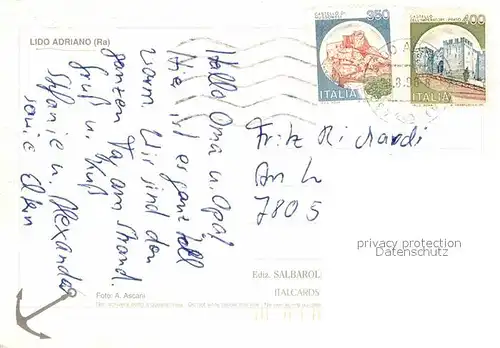 LIDO ADRIANO (Ra)
Hallo Oma u. Opa!
Hier ist es ganz toll
warm. Wir sind den
ganzen Tag am Strand.
Gruß u. Kuß
Stefanie u. Alexander
sowie Eltern
Foto: A. Ascani
Ediz. SALBAROL
ITALCARDS
CASTELLO DI
350
ITALIA
CASTELLO
DELL'IMPERATORE - PRATO
400
ITALIA
Fritz Richardi
Am L
7805
privacy protection
Datenschutz